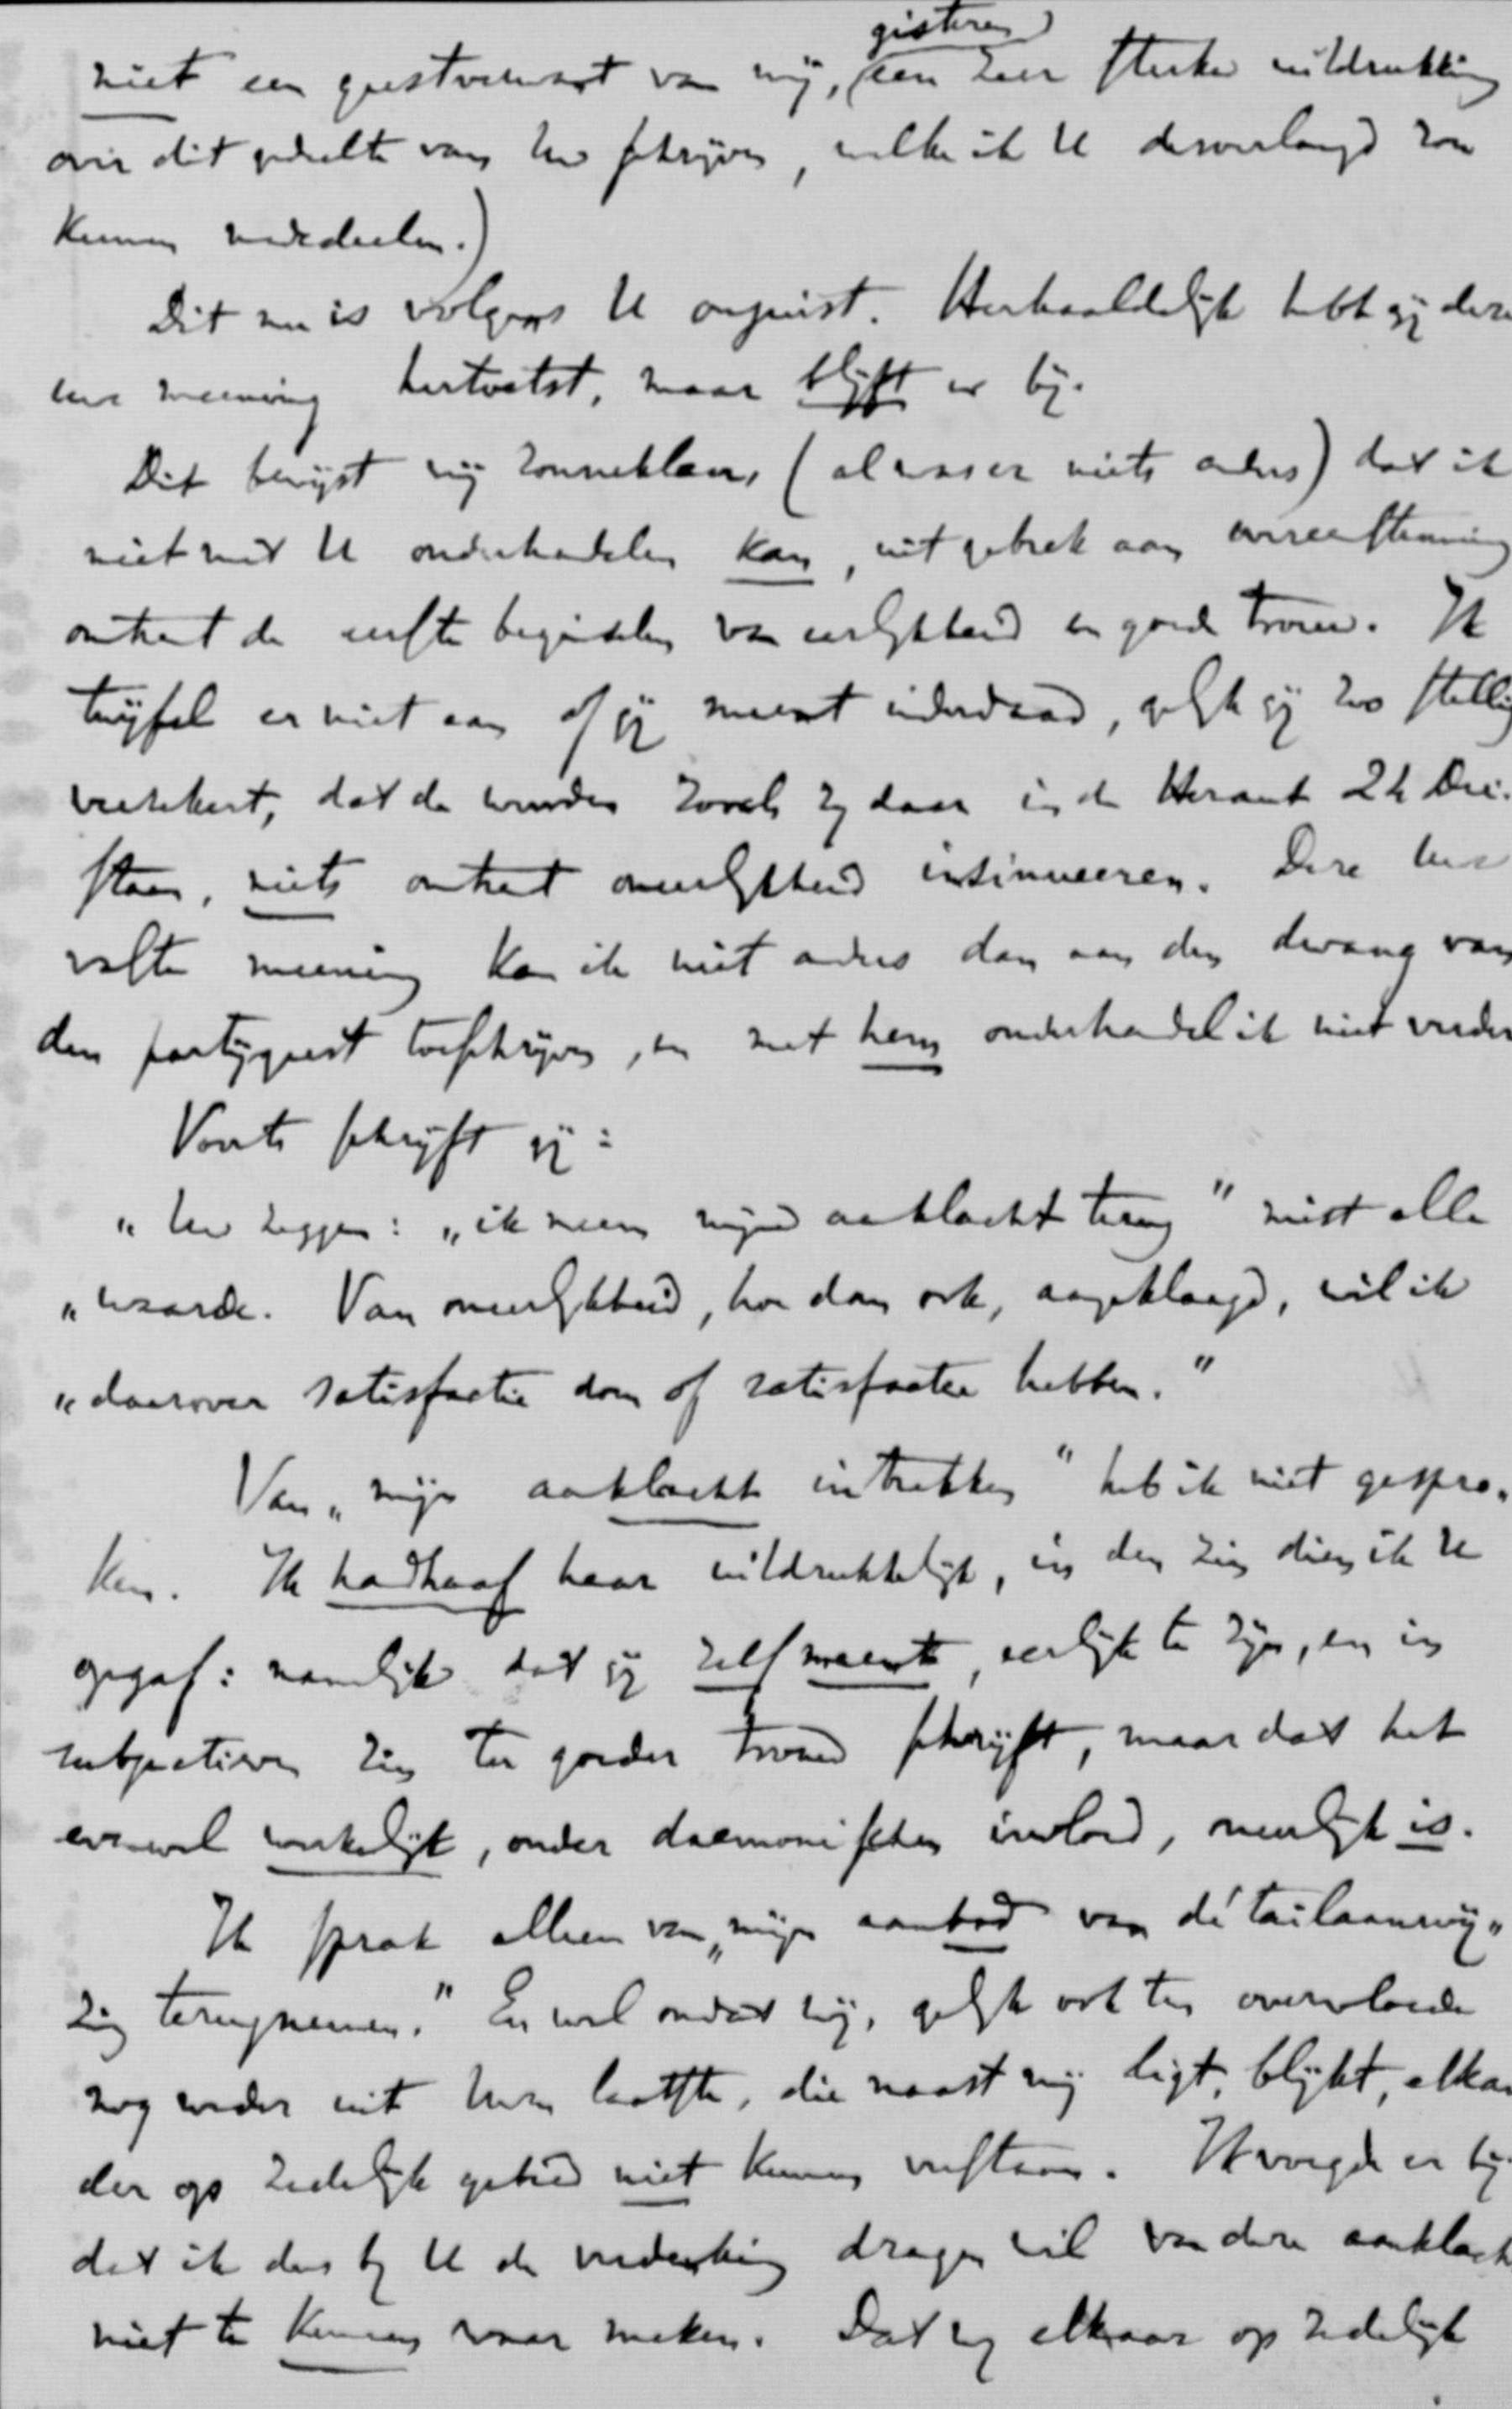 gisteren
niet een geestverwant van mij, (een zeer sterke uitdrukking
over dit gedeelte van Uw schrijven, welke ik U desverlangd zou
kunnen mededeelen.)
Dit nu is volgens U onjuist. Herhaaldelijk hebt gij deze
uwe meening hertoetst, maar blijft er bij.
Dit bewijst mij zonneklaar, (alwaser niets anders) dat ik
niet met U onderhandelen kan, uit gebrek aan overeenstemming
omtrent de eerste beginselen van eerlijkheid en goede trouw. Ik
twijfel er niet aan of gij meent inderdaad, gelijk gij zoo stellig
verzekert, dat de woorden zooals zij daar in de Heraut 24 Dec.
staan, niets omtrent oneerlijkheid insinueeren. Deze uwe
vaste meening kan ik niet anders dan aan den dwang van
den partijgeest toeschrijven, en met hem onderhandel ik niet verder
Voorts schrijft gij:
„Uw zeggen: „ik neem mijne aanklacht terug” mist alle
„waarde. Van oneerlijkheid, hoe dan ook, aangeklaagd, wil ik
„daarover satisfactie doen of satisfactie hebben.”
Van „mijn aanklacht intrekken” heb ik niet gespro„
ken. Ik handhaaf haar uitdrukkelijk, in den zin dien ik U
opgaf: namelijk dat gij zelf meent, eerlijk te zijn, en in
subjectieven zin ter goeder trouw schrijft, maar dat het
evenwel werkelijk, onder daemonischen invloed, oneerlijk is.
Ik sprak alleen van „mijn aanbod van détailaanwij„
zing terugnemen.” En wel omdat wij, gelijk ook ten overvloede
nog weder uit Uwen laatste, die naast mij ligt, blijkt, elkan
der op zedelijk gebied niet kunnen verstaan. Ik voegde er bij
dat ik dus bij U de verdenking dragen wil van deze aanklacht
niet te kunnen waar maken. Dat wij elkaar op zedelijk